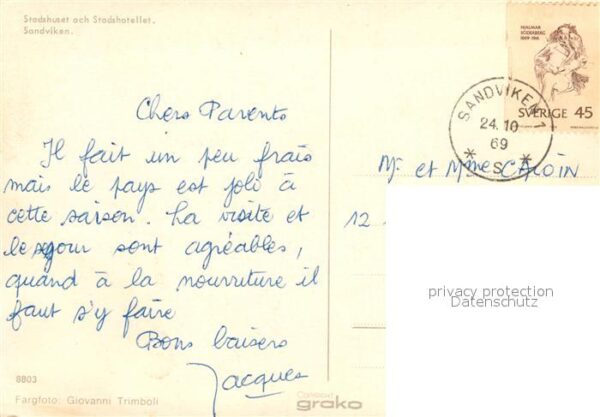 Stadshuset och Stadshotellet.
Sandviken.
Chers Parents
Il fait un peu frais
mais le pays est joli à
cette saison. La visite et
le séjour sont agréables,
quand à la nourriture il
faut s'y faire
Bons baisers
Jacques
8803
Fargfoto: Giovanni Trimboli
grako
HJALMAR
SÖDERBERG
1869-1941
SVERIGE 45
SANDVIKEN 1
24.10
69
* S *
Mr et Mme CALOIN
12
privacy protection
Datenschutz